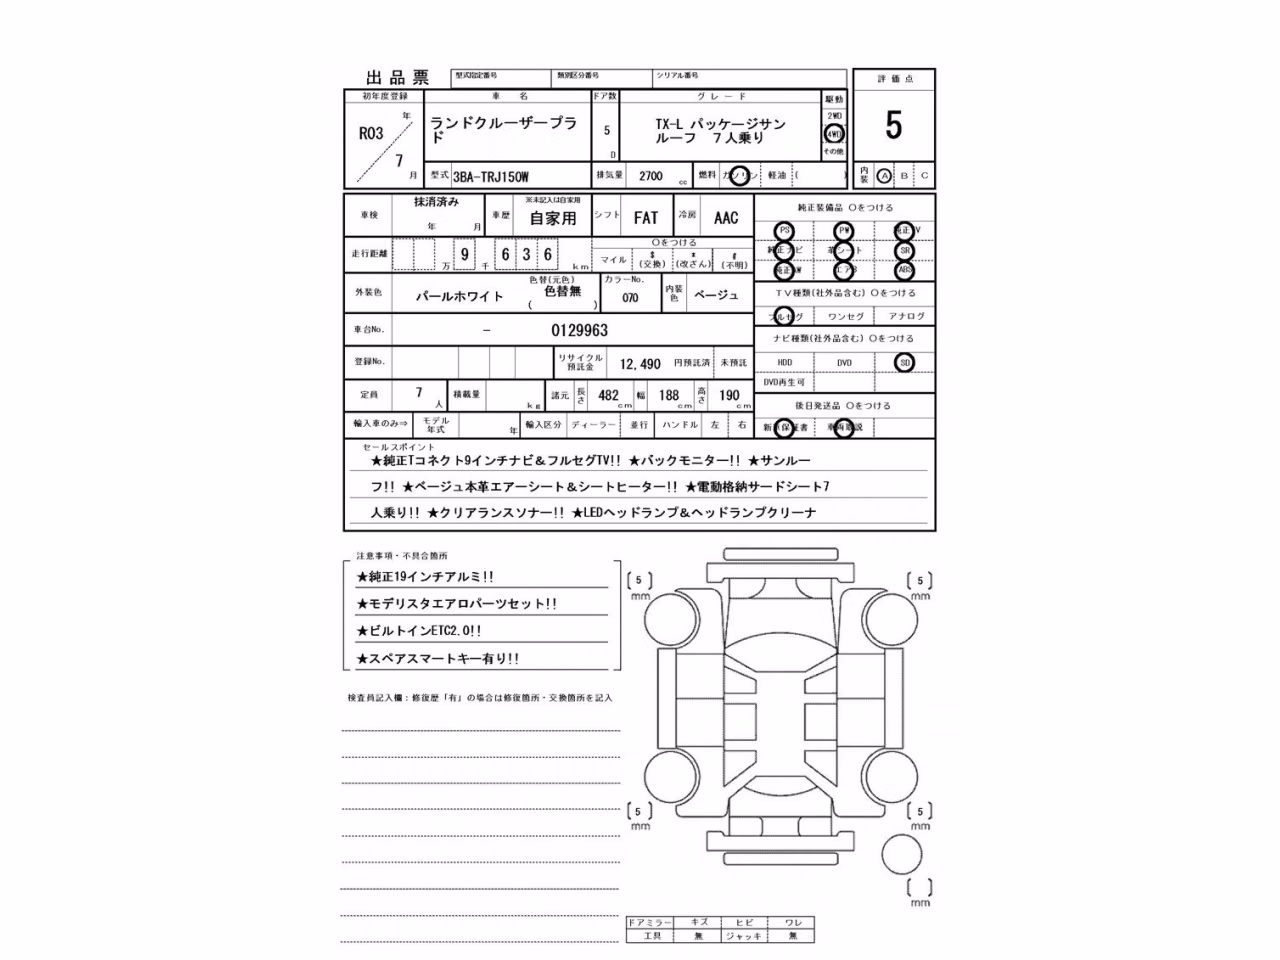 出品票 型式指定番号 類別区分番号 シリアル番号 評価点
初年度登録 車名 ドア数 グレード 駆動
R03 年 7 月
ランドクルーザープラ
ド
5 D
TX-L パッケージサン
ルーフ 7人乗り
2WD
4WD
その他
5
型式 3BA-TRJ150W 排気量 2700 cc 燃料 ガソリン 軽油 ( ) 内装 A B C
車検 抹消済み 年 月 車歴 ※未記入は自家用 自家用 シフト FAT 冷房 AAC
走行距離 9 万 6 千 6 3 6 km
〇をつける
マイル $ (交換) * (改ざん) # (不明)
外装色 パールホワイト 色替(元色) 色替無 ( ) カラーNo. 070 内装色 ベージュ
車台No. - 0129963
登録No. リサイクル預託金 12,490 円預託済 未預託
定員 7 人 積載量 kg 諸元 長さ 482 cm 幅 188 cm 高さ 190 cm
輸入車のみ⇒ モデル年式 年 輸入区分 ディーラー 並行 ハンドル 左 右
純正装備品 〇をつける
PS PW 純正TV
純正ナビ 革シート SR
純正AW エアB ABS
TV種類(社外品含む) 〇をつける
フルセグ ワンセグ アナログ
ナビ種類(社外品含む) 〇をつける
HDD DVD SD
DVD再生可
後日発送品 〇をつける
新車保証書 車両取説
セールスポイント
★純正Tコネクト9インチナビ&フルセグTV!! ★バックモニター!! ★サンルー
フ!! ★ベージュ本革エアーシート&シートヒーター!! ★電動格納サードシート7
人乗り!! ★クリアランスソナー!! ★LEDヘッドランプ&ヘッドランプクリーナ
注意事項・不具合箇所
★純正19インチアルミ!!
★モデリスタエアロパーツセット!!
★ビルトインETC2.0!!
★スペアスマートキー有り!!
検査員記入欄:修復歴「有」の場合は修復箇所・交換箇所を記入
[5] mm [5] mm
[5] mm [5] mm
[ ] mm
ドアミラー キズ ヒビ ワレ
工具 無 ジャッキ 無